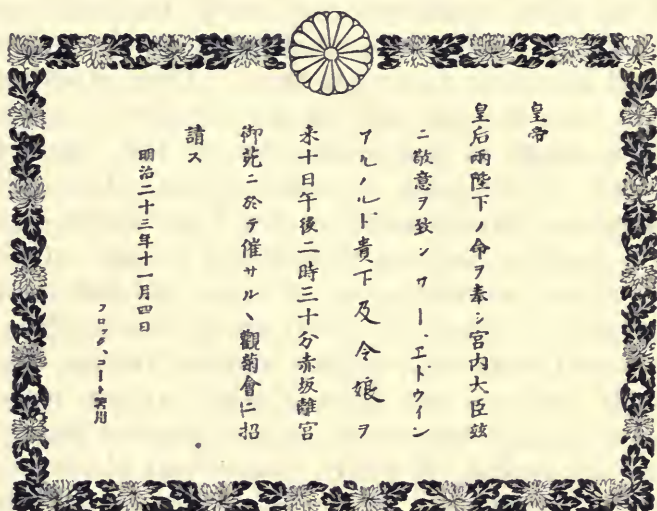 皇帝
皇后兩陛下ノ命ヲ奉シ宮内大臣玆
ニ敬意ヲ致シサー、エドウイン
アルノルド貴下及令娘ヲ
来十日午後二時三十分赤坂離宮
御苑ニ於テ催サル、觀菊會ニ招
請ス
明治二十三年十一月四日
フロック、コート着用